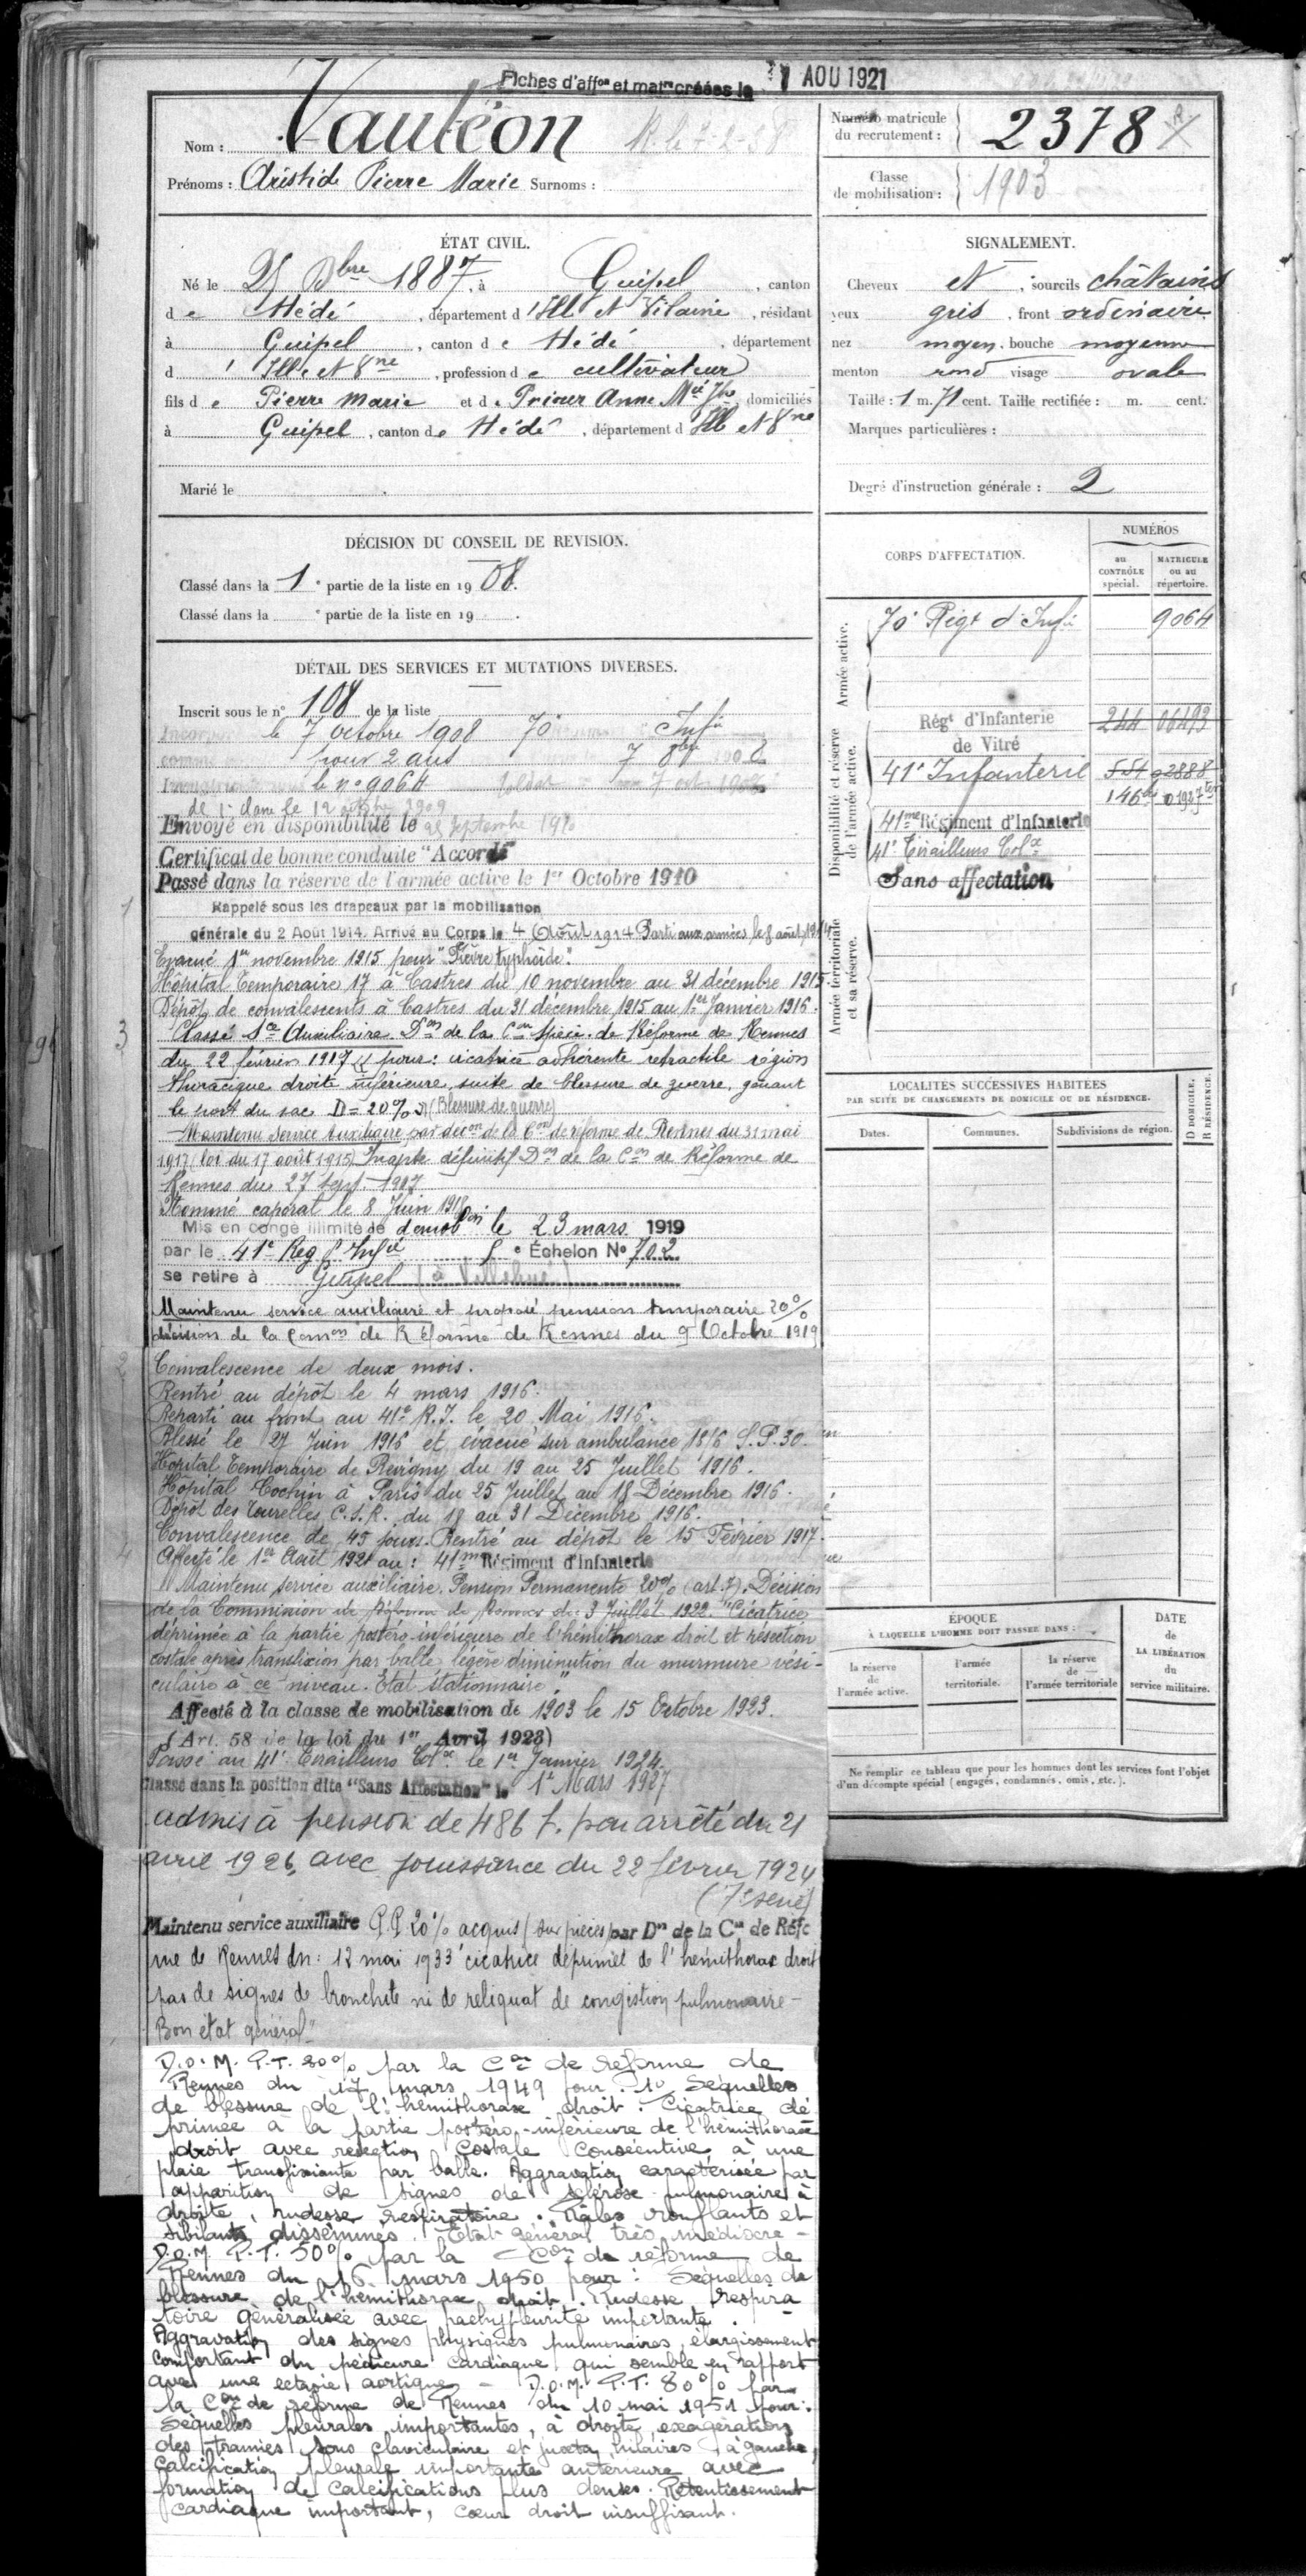 Fiches d'aff^on et mat^le créées le 7 AOU 1921
Nom : Vauléon
Prénoms : Aristide Pierre Marie Surnoms :
Numéro matricule du recrutement : 2378
Classe de mobilisation : 1903
ÉTAT CIVIL.
Né le 25 bre 1887, à Guipel, canton
de Hédé, département d'Ille et Vilaine, résidant
à Guipel, canton de Hédé, département
d'Ille et Vne, profession de cultivateur
fils de Pierre Marie et de Prioux Anne Mie, domiciliés
à Guipel, canton de Hédé, département d'Ille et Vne
Marié le
SIGNALEMENT.
Cheveux et, sourcils châtains
yeux gris, front ordinaire
nez moyen, bouche moyenne
menton rond visage ovale
Taille : 1 m. 71 cent. Taille rectifiée : m. cent.
Marques particulières :
Degré d'instruction générale : 2
DÉCISION DU CONSEIL DE REVISION.
Classé dans la 1e partie de la liste en 1908.
Classé dans la e partie de la liste en 19 .
DÉTAIL DES SERVICES ET MUTATIONS DIVERSES.
Inscrit sous le n° 108 de la liste
le 7 octobre 1908 70e Infie
pour 2 ans 7 8bre 1908
le n° 9064 soldat 7 oct 1908
de 1e classe le 12 octobre 1909
Envoyé en disponibilité le 25 septembre 1910
Certificat de bonne conduite "Accordé"
Passé dans la réserve de l'armée active le 1er Octobre 1910
1 Rappelé sous les drapeaux par la mobilisation
générale du 2 Août 1914. Arrivé au Corps le 4 Août 1914 Parti aux armées le 8 août 1914
Evacué 1er novembre 1915 pour "Fièvre typhoïde".
Hôpital Temporaire 17 à Castres du 10 novembre au 31 décembre 1915.
Dépôt de convalescents à Castres du 31 décembre 1915 au 1er Janvier 1916.
3 Classé Sce Auxiliaire Don de la Con Spéci. de Réforme de Rennes
du 22 février 1917 pour : cicatrice adhérente rétractile région
thoracique droite inférieure, suite de blessure de guerre, gênant
le port du sac D = 20% (Blessure de guerre)
Maintenu Service Auxiliaire par déc.on de la Con de réforme de Rennes du 31 mai
1917 (loi du 17 août 1915) Inapte définitif Don de la Con de Réforme de
Rennes du 27 sept. 1917
Nommé caporal le 8 Juin 1918.
Mis en congé illimité de démobon le 23 mars 1919
par le 41e Reg d'Infie e Échelon N° 702
se retire à Guipel
Maintenu service auxiliaire et proposé pension temporaire 20%
décision de la Comon de Réforme de Rennes du 9 Octobre 1919
2 Convalescence de deux mois.
Rentré au dépôt le 4 mars 1916.
Reparti au front au 41e R.I. le 20 Mai 1916.
Blessé le 27 Juin 1916 et évacué sur ambulance 18/6 S.P. 30.
Hôpital Temporaire de Revigny du 19 au 25 Juillet 1916.
Hôpital Cochin à Paris du 25 Juillet au 18 Décembre 1916.
Dépôt des Tourelles C.S.R. du 18 au 31 Décembre 1916.
Convalescence de 45 jours. Rentré au dépôt le 15 Février 1917.
4 Affecté le 1er Août 1921 au : 41me Régiment d'Infanterie
Maintenu service auxiliaire. Pension Permanente 20% (art. 7). Décision
de la Commission de Réforme de Rennes du 3 Juillet 1922. "Cicatrice
déprimée à la partie postéro-inférieure de l'hémithorax droit et résection
costale après transfixion par balle légère diminution du murmure vési-
culaire à ce niveau. Etat stationnaire."
Affecté à la classe de mobilisation de 1903 le 15 Octobre 1923.
(Art. 58 de la loi du 1er Avril 1923)
Passé au 41e Tirailleurs Colx le 1er Janvier 1924.
Classé dans la position dite "Sans Affectation" le 1er Mars 1927
admis à pension de 486 f. par arrêté du 21
avril 1926, avec jouissance du 22 février 1924
Maintenu service auxiliaire P.P. 20% acquis (sur pièces) par Don de la Con de Réfo
rme de Rennes du : 12 mai 1933 "cicatrice déprimée de l'hémithorax droit
pas de signes de bronchite ni de reliquat de congestion pulmonaire -
Bon état général"
D.O.M. P.T. 30% par la Con de réforme de
Rennes du 17 mars 1949 pour : 1° Séquelles
de blessure de l'hémithorax droit : Cicatrice dé
primée à la partie postéro-inférieure de l'hémithorax
droit avec résection Costale Consécutive à une
plaie transfixiante par balle. Aggravation caractérisée par
apparition de signes de sclérose pulmonaire à
droite, rudesse respiratoire. Râles ronflants et
sibilants disséminés. Etat général très médiocre -
D.O.M. P.T. 50% par la Con de réforme de
Rennes du 16 mars 1950 pour : Séquelles de
blessure de l'hémithorax droit. Rudesse respira
toire généralisée avec pachypleurite importante.
Aggravation des signes physiques pulmonaires, élargissement
Comportant du pédicure Cardiaque qui semble en rapport
avec une ectasie aortique - D.O.M. P.T. 80% par
la Con de réforme de Rennes du 10 mai 1951 pour :
Séquelles pleurales importantes, à droite, exagération
des tramies sous claviculaire et juxta hilaires, à gauche,
Calcification pleurale importante antérieure avec
formation de calcifications plus denses. Retentissement
Cardiaque important, coeur droit insuffisant.
CORPS D'AFFECTATION.
NUMÉROS
au CONTRÔLE spécial.
MATRICULE ou au répertoire.
Armée active.
70e Régt d'Infie 9064
Disponibilité et réserve de l'armée active.
Régt d'Infanterie de Vitré 244 06493
41e Infanterie 554 02888
146
41me Régiment d'Infanterie
41e Tirailleurs Colx
Sans affectation
Armée territoriale et sa réserve.
LOCALITÉS SUCCESSIVES HABITÉES
PAR SUITE DE CHANGEMENTS DE DOMICILE OU DE RÉSIDENCE.
Dates.
Communes.
Subdivisions de région.
D DOMICILE.
R RÉSIDENCE.
ÉPOQUE
À LAQUELLE L'HOMME DOIT PASSER DANS :
la réserve de l'armée active.
l'armée territoriale.
la réserve de l'armée territoriale
DATE de LA LIBÉRATION du service militaire.
Ne remplir ce tableau que pour les hommes dont les services font l'objet
d'un décompte spécial (engagés, condamnés, omis, etc.).